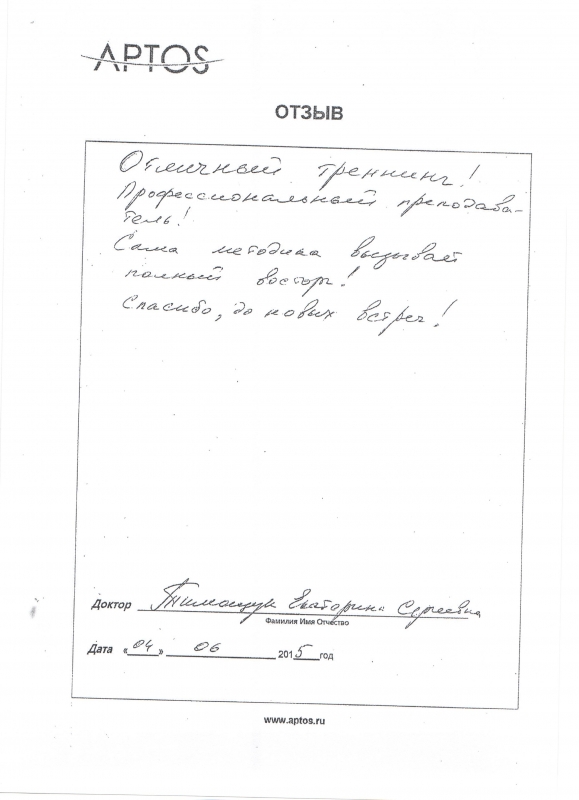 APTOS
ОТЗЫВ
Отличный тренинг!
Профессиональный преподава-
тель!
Сама методика вызывает
полный восторг!
Спасибо, до новых встреч!
Доктор Тимощук Екатерина Сергеевна
Фамилия Имя Отчество
Дата «04» 06 2015 год
www.aptos.ru